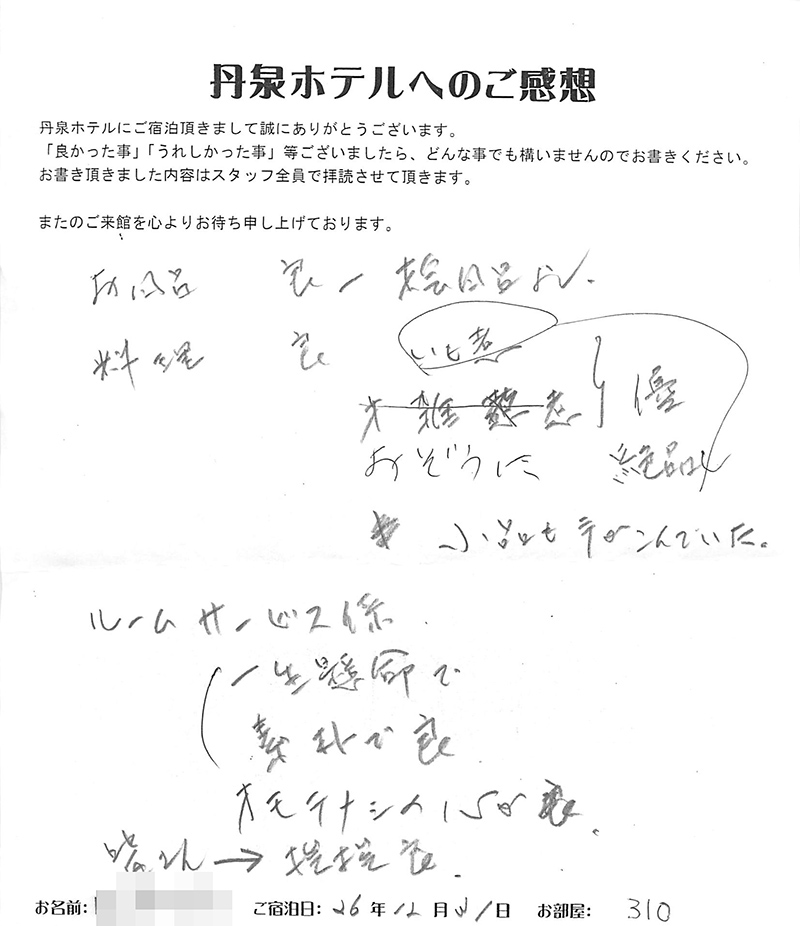 丹泉ホテルへのご感想
丹泉ホテルにご宿泊頂きまして誠にありがとうございます。
「良かった事」「うれしかった事」等ございましたら、どんな事でも構いませんのでお書きください。
お書き頂きました内容はスタッフ全員で拝読させて頂きます。
またのご来館を心よりお待ち申し上げております。
お風呂 良 桧風呂よし.
料理 良 いも煮
優
おぞうに 絶品
小品も手がこんでいた。
ルームサービス係
一生懸命で
素朴で良
オモテナシの心が良.
皆さん→挨拶良.
お名前: ご宿泊日: 26年12月31日 お部屋: 310